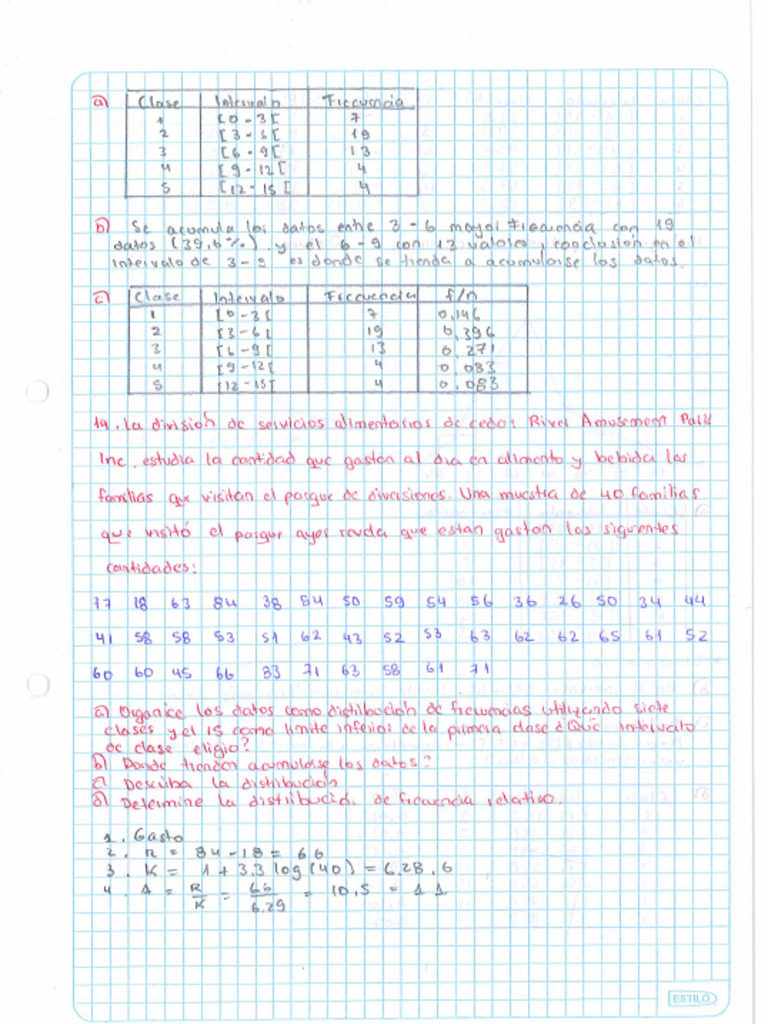 a) Clase Intervalo Frecuencia
1 [0-3[ 7
2 [3-6[ 19
3 [6-9[ 13
4 [9-12[ 4
5 [12-15[ 4
b) Se acumula los datos entre 3-6 mayor frecuencia con 19
datos (39,6%) y el 6-9 con 13 valores, conclusión en el
intervalo de 3-9 es donde se tienda a acumularse los datos.
c) Clase Intervalo Freccuencia f/n
1 [0-3[ 7 0,146
2 [3-6[ 19 0,396
3 [6-9[ 13 0,271
4 [9-12[ 4 0,083
5 [12-15[ 4 0,083
14. La división de servicios alimentarios de cedar River Amusement Park
Inc. estudia la cantidad que gastan al dia en alimento y bebida las
familias que visitan el parque de diversiones. Una muestra de 40 familias
que visitó el parque ayer revela que estan gastan las siguientes
cantidades:
77 18 63 84 38 54 50 59 54 56 36 26 50 34 44
41 58 58 53 51 62 43 52 53 63 62 62 65 61 52
60 60 45 66 83 71 63 58 61 71
a) Organice los datos como distribución de frecuencias utilizando siete
clases y el 15 como limite inferior de la primera clase ¿Qué intervalo
de clase eligio?
b) Donde tienden acumularse los datos?
c) Describa la distribución
d) Determine la distribución de frecuencia relativo.
1. Gasto
2. R = 84-18 = 66
3. K = 1 + 3.3 log (40) = 6.28, 6
4. A = R/K = 66/6.29 = 10,5 = 11
ESTILO